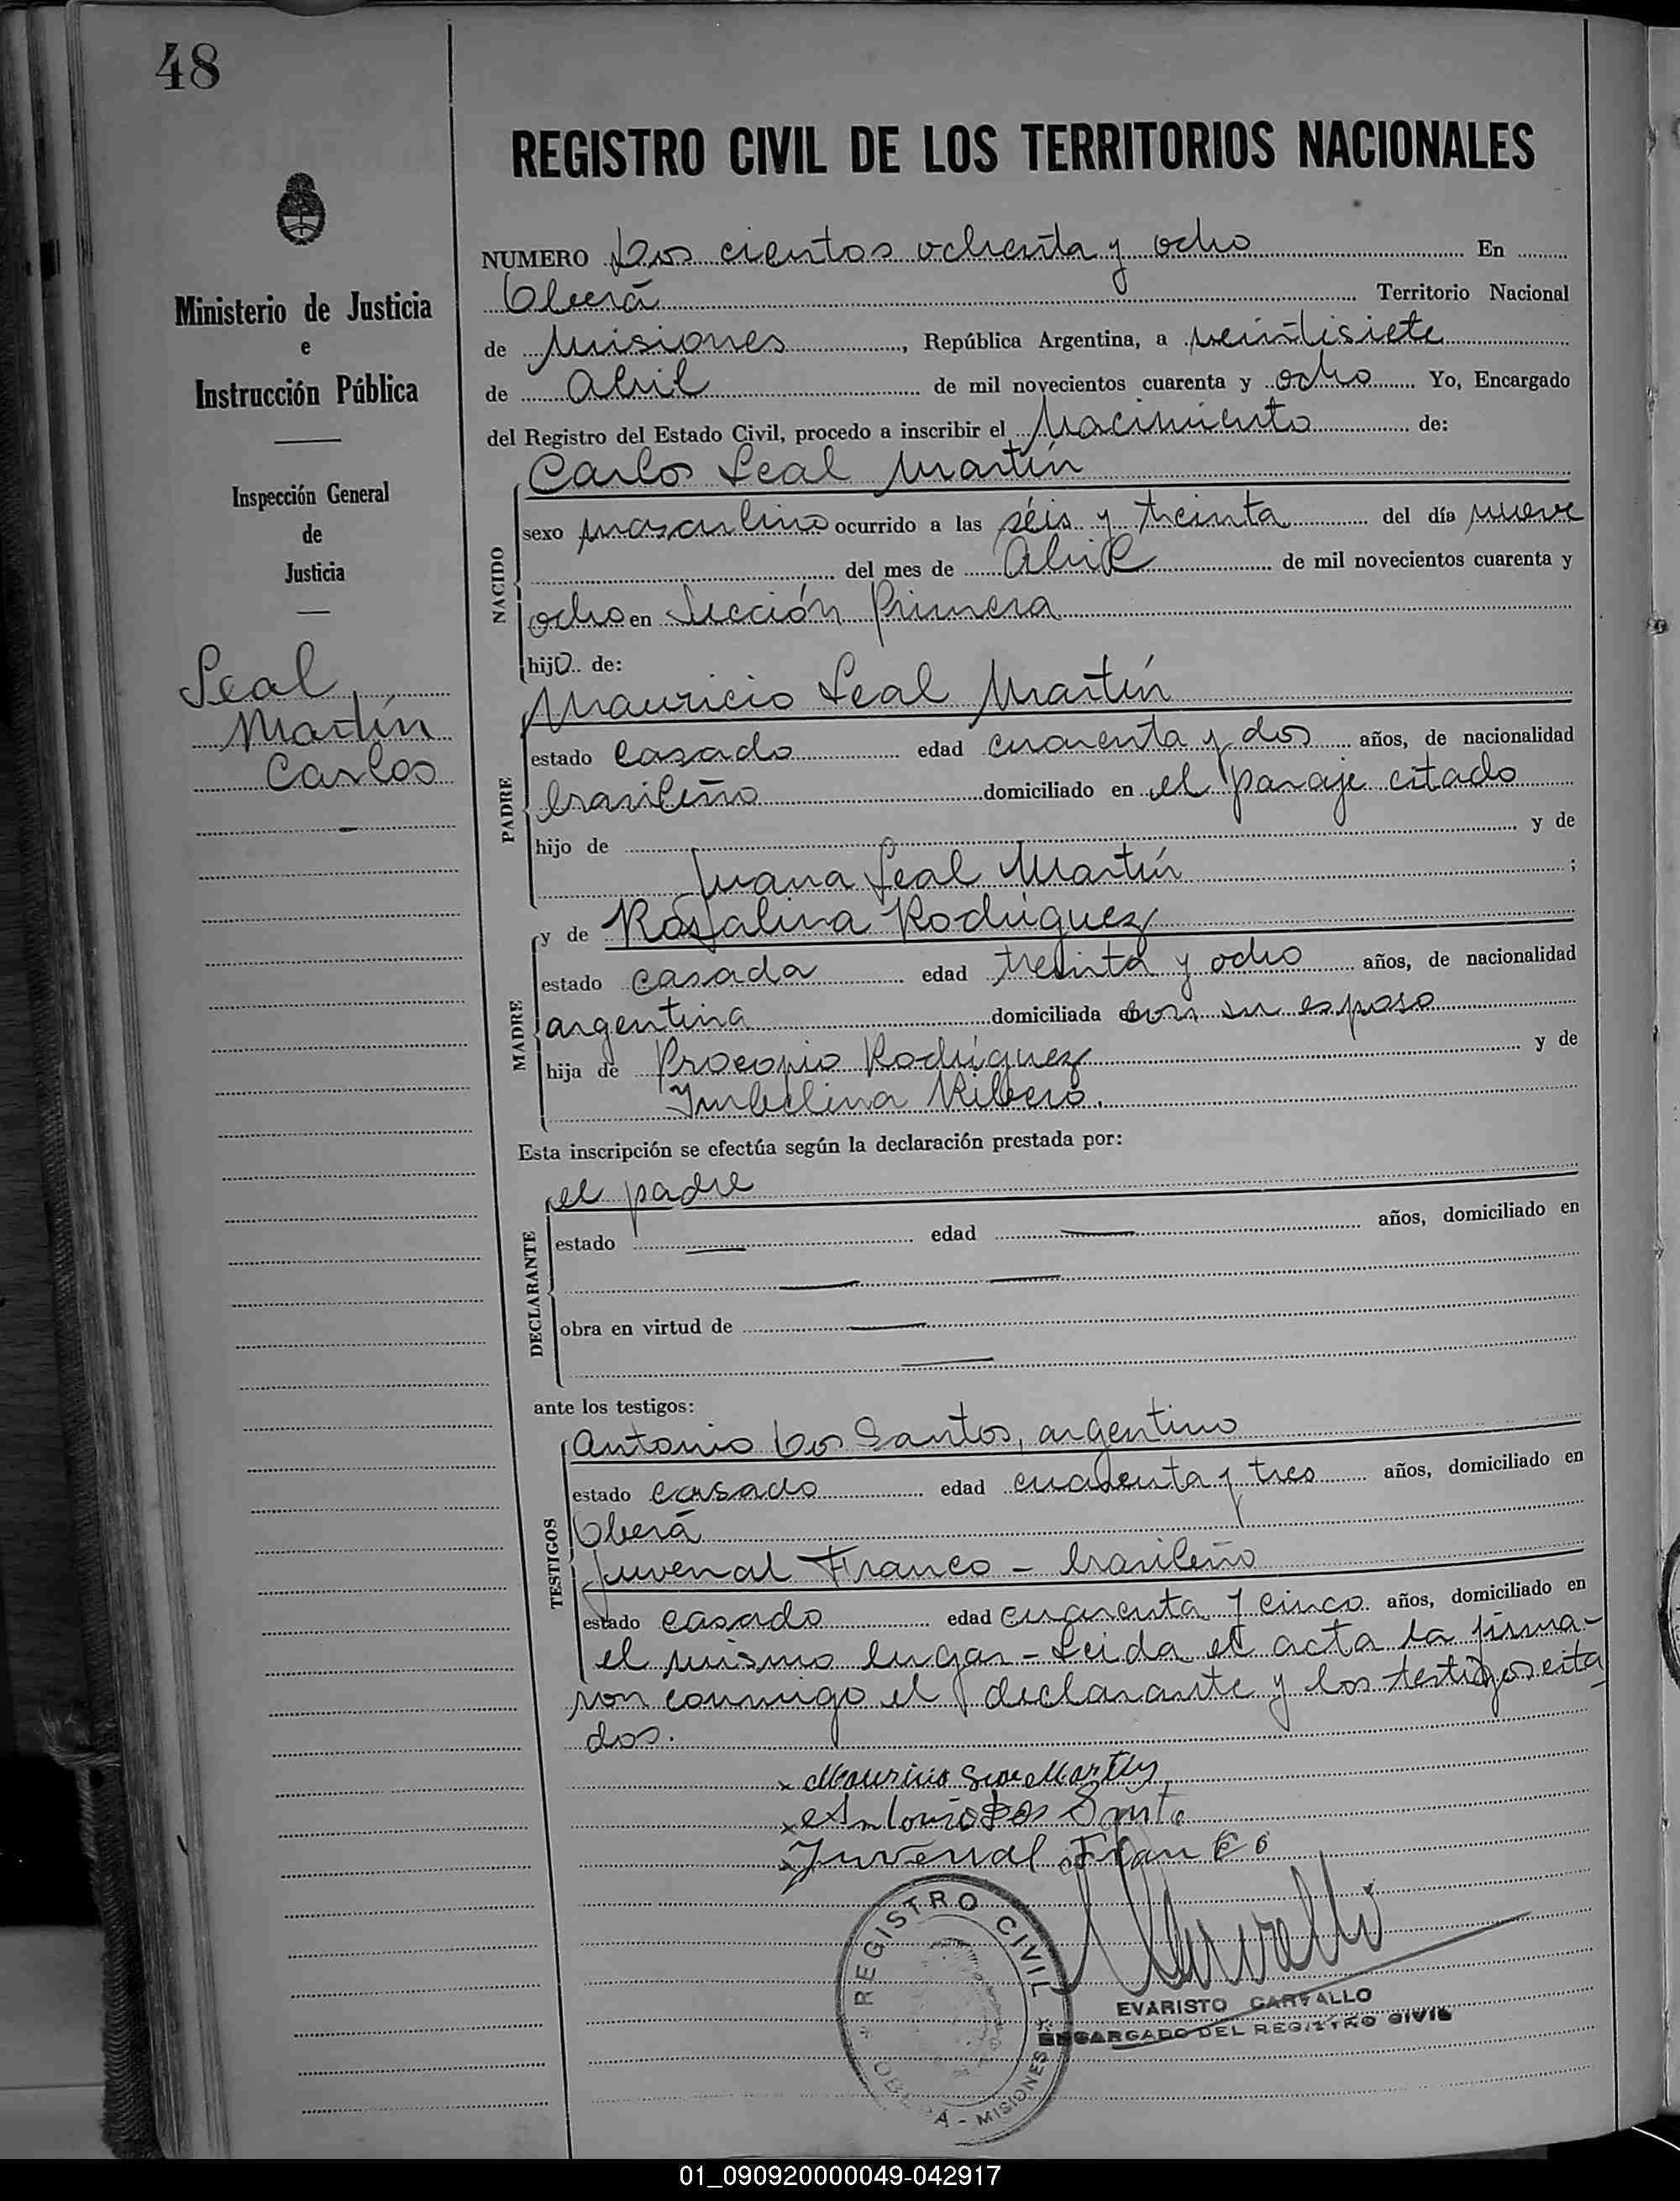 48
REGISTRO CIVIL DE LOS TERRITORIOS NACIONALES
Ministerio de Justicia
e
Instrucción Pública
Inspección General
de
Justicia
Leal
Martín
Carlos
NUMERO Dos cientos ochenta y ocho En
Oberá Territorio Nacional
de Misiones, República Argentina, a veintisiete
de Abril de mil novecientos cuarenta y ocho Yo, Encargado
del Registro del Estado Civil, procedo a inscribir el Nacimiento de:
Carlos Leal Martín
NACIDO
sexo masculino ocurrido a las séis y treinta del día nueve
del mes de Abril de mil novecientos cuarenta y
ocho en Sección Primera
hijo de:
Mauricio Leal Martín
PADRE
estado casado edad cuarenta y dos años, de nacionalidad
brasileño domiciliado en el paraje citado
hijo de y de
Juana Leal Martín ;
y de Rosalina Rodríguez
MADRE
estado casada edad treinta y ocho años, de nacionalidad
argentina domiciliada con su esposo
hija de Procopio Rodríguez y de
Imbelina Ribero.
Esta inscripción se efectúa según la declaración prestada por:
el padre
DECLARANTE
estado edad años, domiciliado en
obra en virtud de
ante los testigos:
Antonio Dos Santos, argentino
TESTIGOS
estado casado edad cuarenta y tres años, domiciliado en
Oberá
Juvenal Franco - brasileño
estado casado edad cuarenta y cinco años, domiciliado en
el mismo lugar - Leida el acta la firma-
ron conmigo el declarante y los testigos cita
dos.
x Mauricio Martin
x Antonio Dos Santo
x Juvenal Franco
REGISTRO CIVIL
OBERÁ - MISIONES
EVARISTO CARVALLO
ENCARGADO DEL REGISTRO CIVIL
01_090920000049-042917